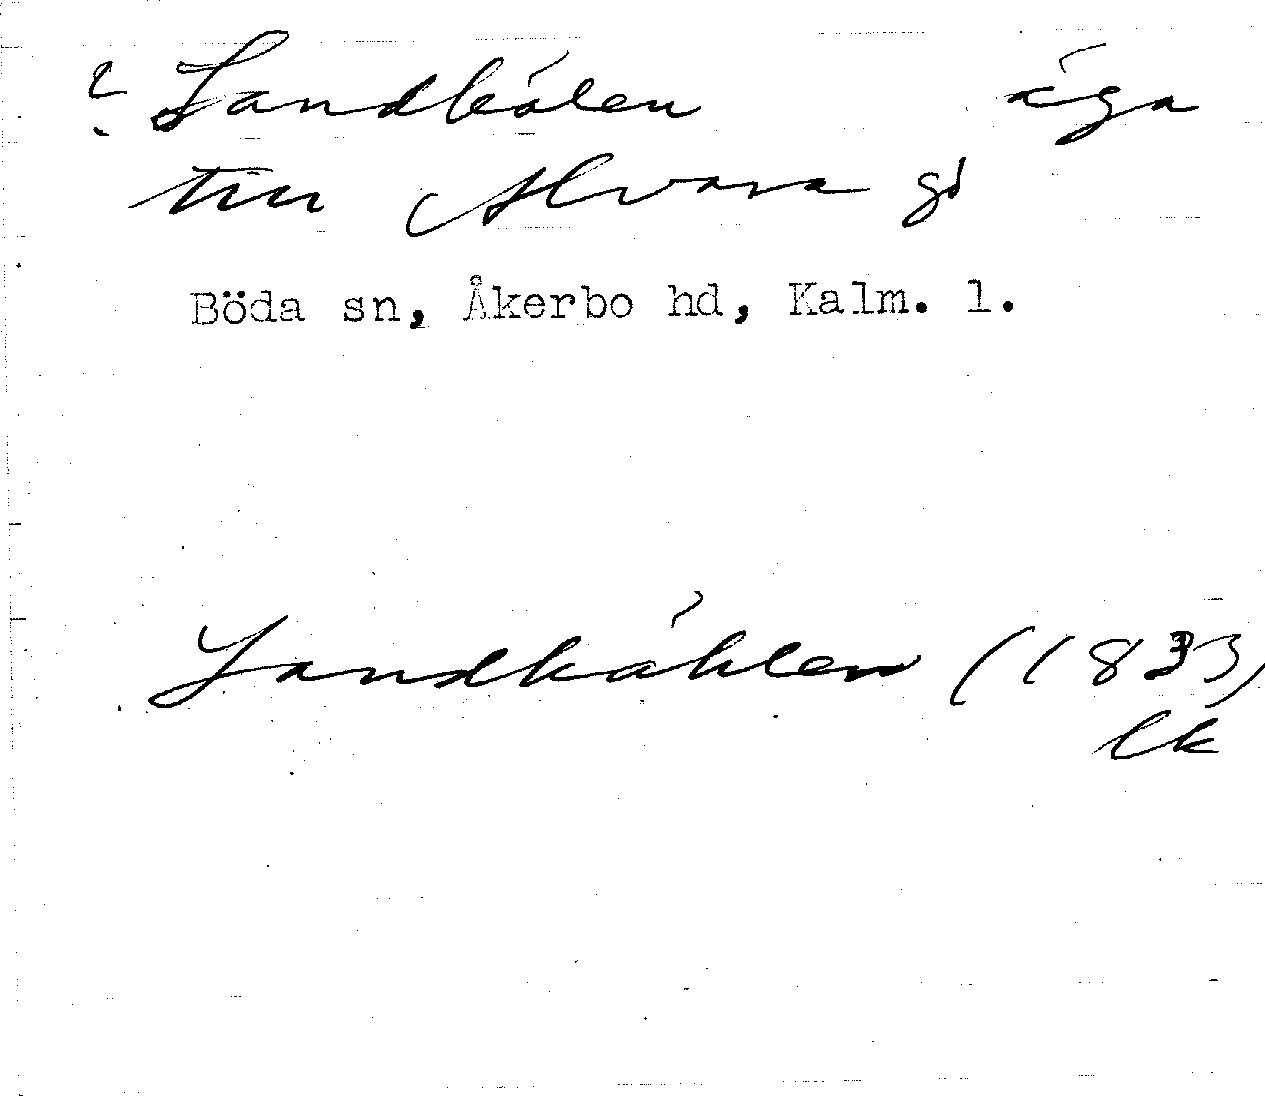 ? Sandkålen äga
till Alvara gd
Böda sn, Åkerbo hd, Kalm. l.
Sandkåhlen (1833)
lk